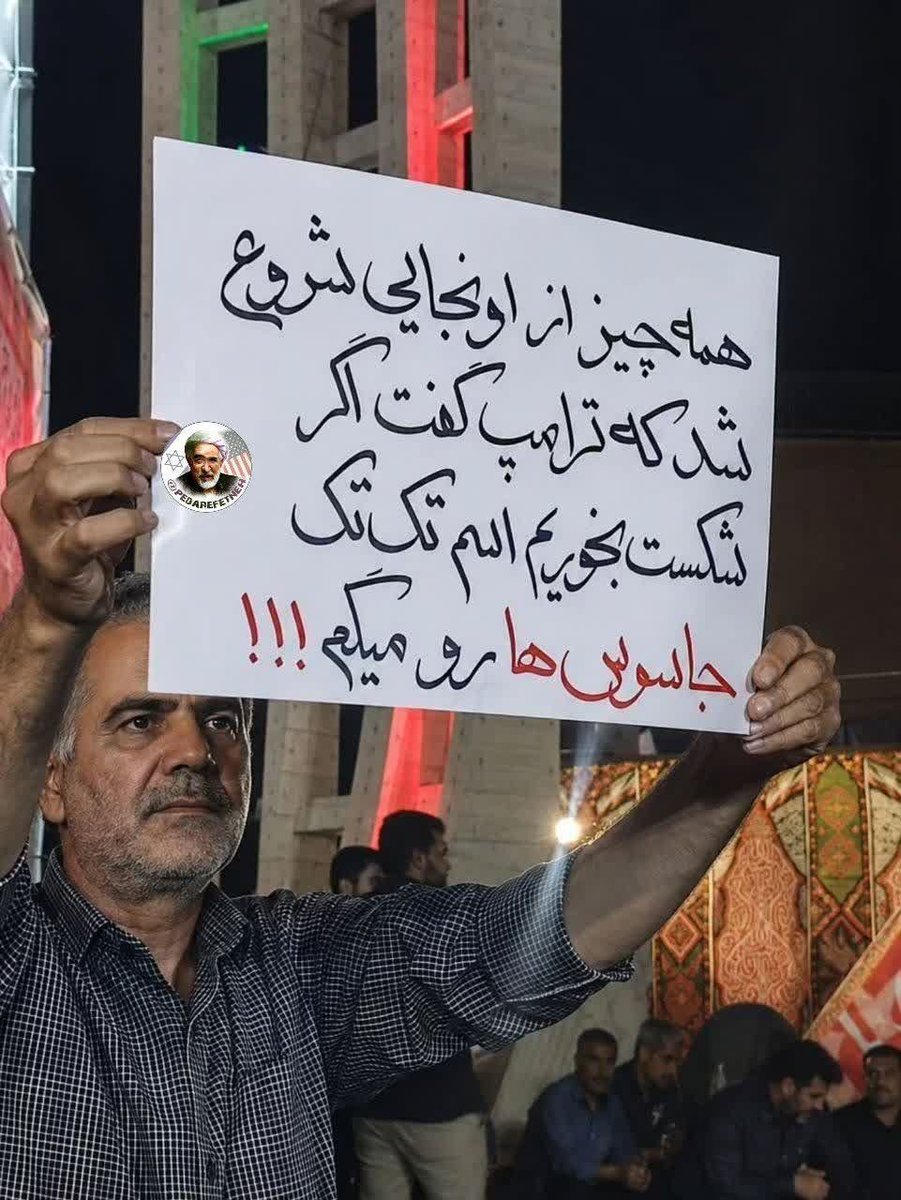 همه چیز از اونجایی شروع
شد که ترامپ گفت اگر
شکست بخوریم اسم تک تک
جاسوس ها رو میگم !!!
@PEDAREFETNEH